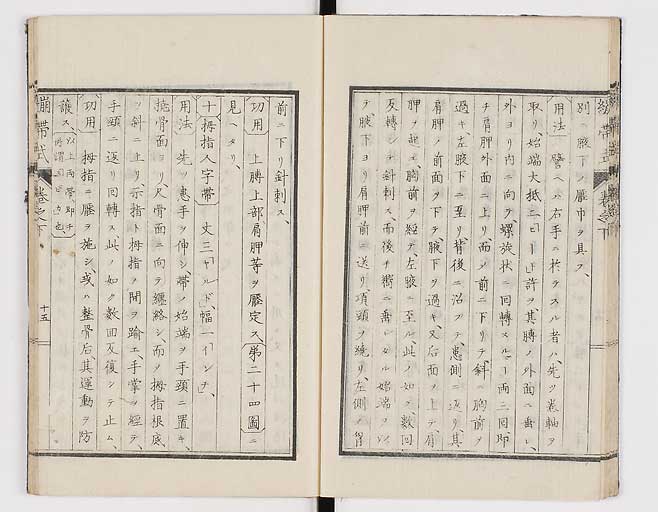 繃帶式 卷之下
別腋下ノ壓巾ヲ具フ、
用法 譬ヘハ右手ニ於テスル者ハ、先ツ卷軸ヲ
取リ、始端大抵二「ヒロー」許ヲ其膊ノ外面ニ垂レ、
外ヨリ内ニ向ヲ、螺旋狀ニ回轉スルヿ両三回、即
チ肩胛外面ニ上リ、而メ前ニ下リテ、斜ニ胸前ヲ
過キ、左腋下ニ至リ、背後ニ沿フテ、患側ニ返リ、其
肩胛ノ前面ヲ下テ腋下ヲ過キ、又后面ノ上テ、肩
胛ヲ越ヘ、胸前ヲ経テ、左腋ニ至ル、此ノ如ク數回
反轉シテ針刺ス、而後チ嚮ニ垂レタル始端ヲ
テ腋下ヨリ肩胛前ニ送リ、項頸ヲ繞リ、左側ノ胷
前ニ下リ針刺ス、
功用 上膊上部肩胛等ヲ壓定ス、第二十四圖ニ
見ヘタリ、
十 拇指人字帶 丈三「ヤールド」、幅一「インチ」、
用法 先ツ患手ヲ伸シ、帶ノ始端ヲ手頸ニ置キ、
撓骨面ヨリ尺骨面ニ向テ纏絡シ、而ヲ拇指根底
ヲ斜ニ上リ、示指ト拇指ノ間ヲ踰エ、手掌ヲ經テ、
手頸ニ返リ回轉ス、此ノ如ク數回反復シテ止ム、
功用 拇指ニ壓ヲ施シ、或ハ整骨后、其運動ヲ防
護ス、以上両帶、即チ
繃帶式 卷之下 十五